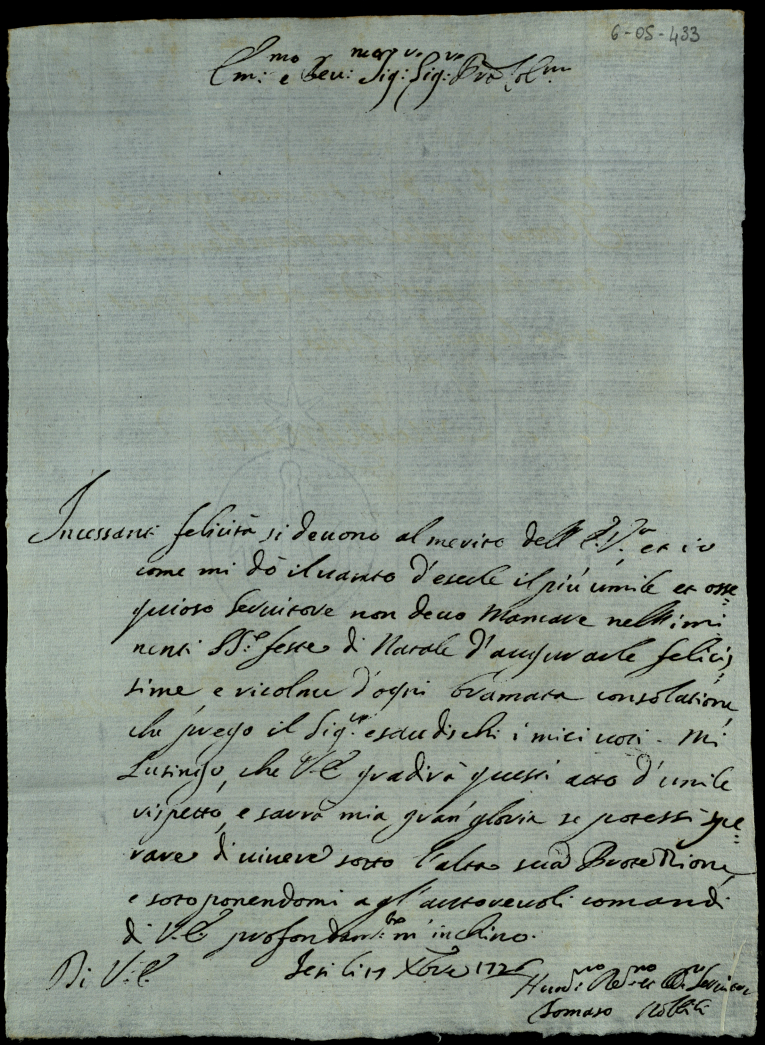 6-05-433
Em:mo e Reu:mo Sig:re Sig:re Pro[n] Col:mo
Incessanti felicità si deuono al merito dell' E.V.ra et io
come mi dò il uanto d'esserle il più umile et osse=
quioso Seruitore non deuo Mancare nell'immi
nenti SS.e feste di Natale d'augurarle felicis,
sime e ricolme d'ogni bramata consolatione,
che prego il Sig.re esaudischi i miei uoti. Mi
Lusingo, che V.E. gradirà questi atto d'umile
rispetto, e sarrà mia gran' gloria se potessi spe=
rare di uiuere sotto l'alta sua Protettione,
e sotoponendomi agl'auttoreuoli comandi
di V.E. profondam:te m'inchino.
Di V.E. Iesi li 17 Xbre 1726
Seruitore
Tomaso